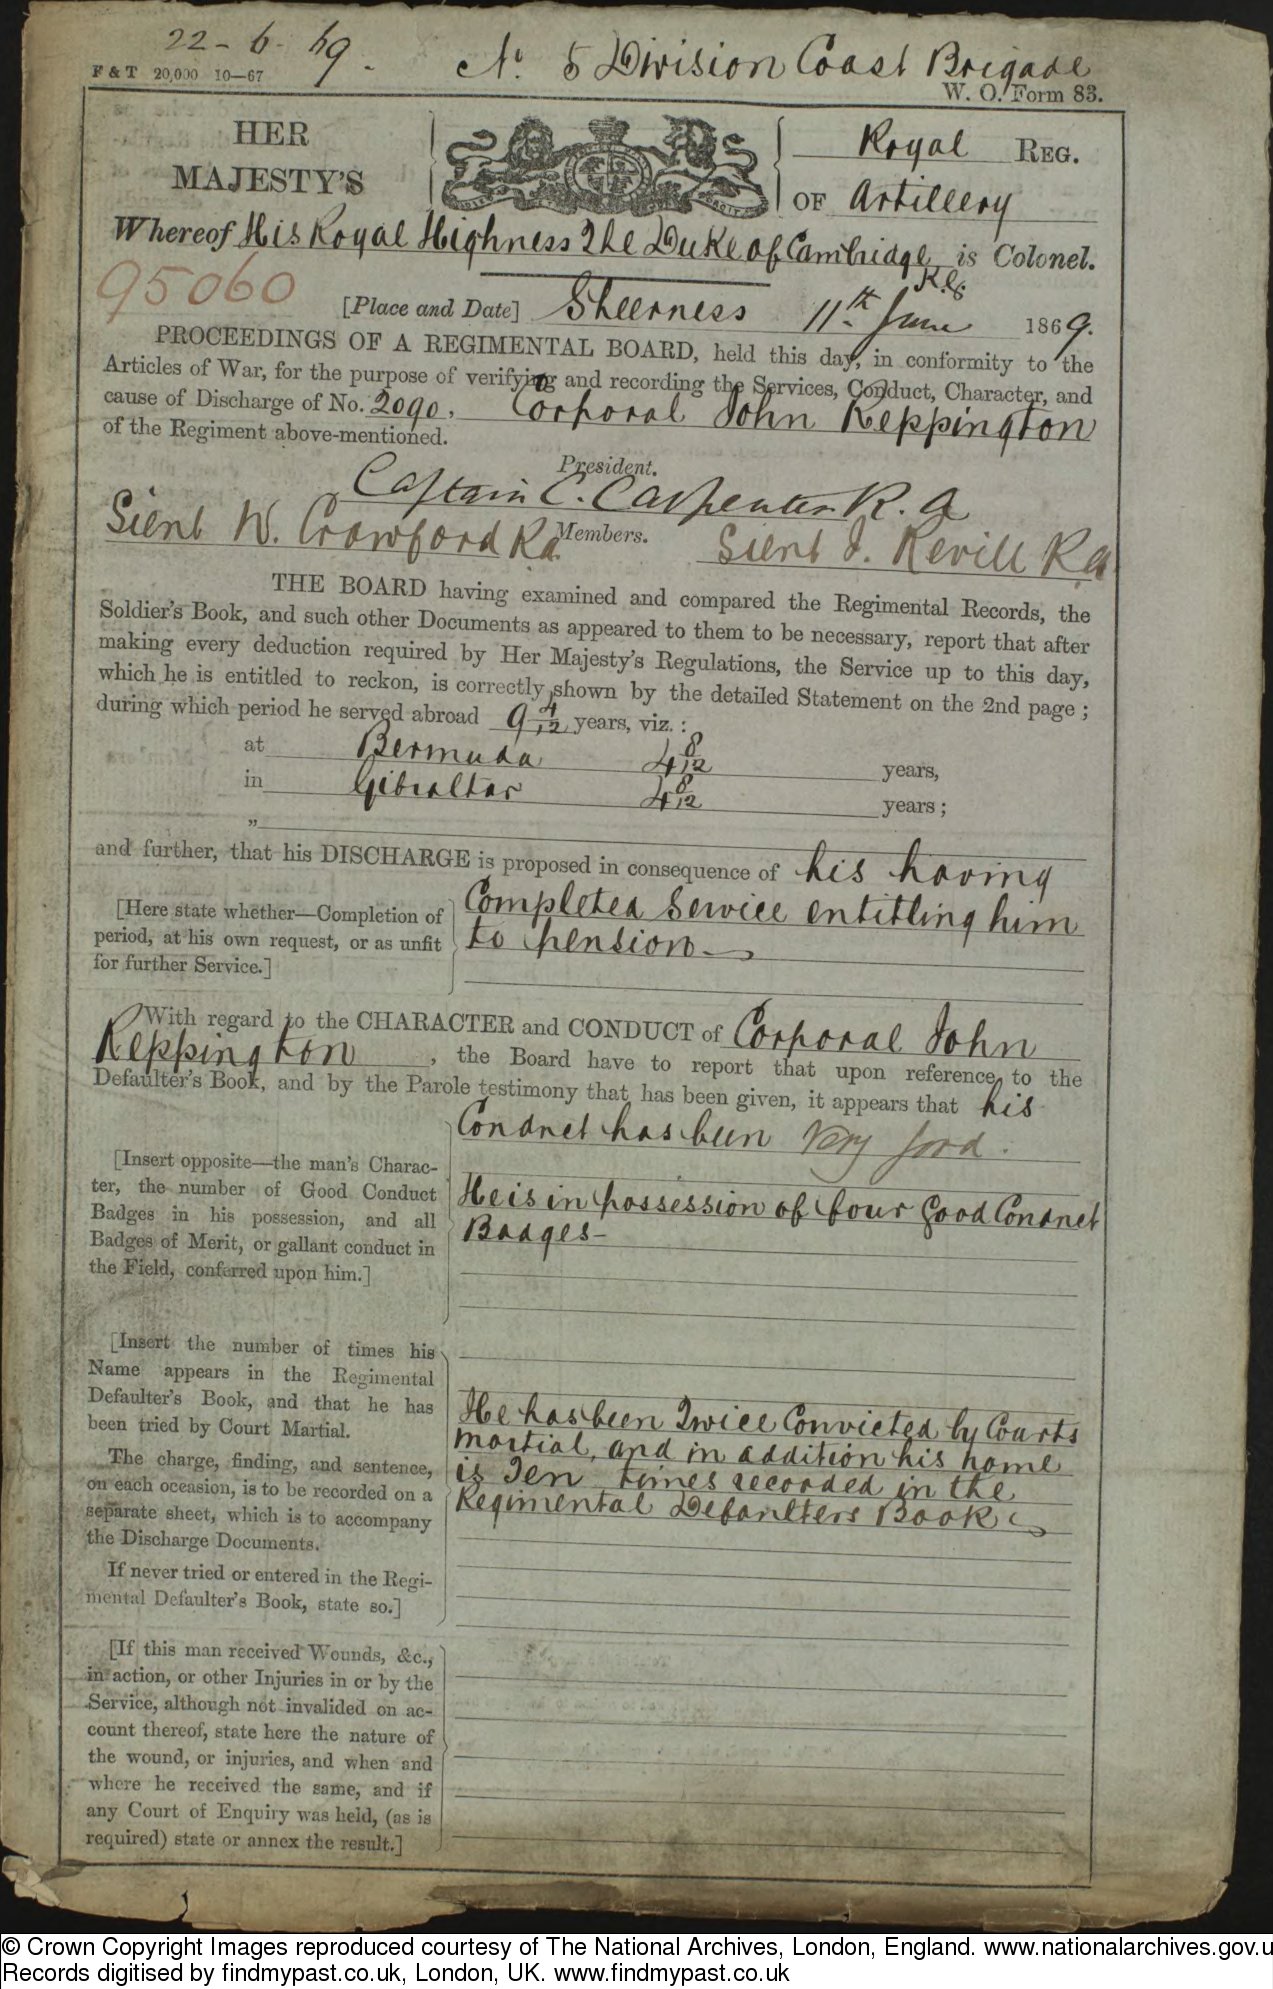 22 - 6 - 69 -
No. 5 Division Coast Brigade
F & T 20,000 10—67
W. O. Form 83.
HER
MAJESTY'S
Royal REG.
OF Artillery
Whereof His Royal Highness The Duke of Cambridge is Colonel.
K.G.
95060
[Place and Date] Sheerness 11th June 1869.
PROCEEDINGS OF A REGIMENTAL BOARD, held this day, in conformity to the
Articles of War, for the purpose of verifying and recording the Services, Conduct, Character, and
cause of Discharge of No. 2090, Corporal John Reppington
of the Regiment above-mentioned.
President.
Captain C. Carpenter R. A
Members.
Lieut W. Crawford R.A. Lieut J. Revill R.A
THE BOARD having examined and compared the Regimental Records, the
Soldier's Book, and such other Documents as appeared to them to be necessary, report that after
making every deduction required by Her Majesty's Regulations, the Service up to this day,
which he is entitled to reckon, is correctly shown by the detailed Statement on the 2nd page ;
during which period he served abroad 9 4/12 years, viz. :
at Bermuda 4 8/12 years,
in Gibraltar 4 8/12 years ;
„
and further, that his DISCHARGE is proposed in consequence of his having
[Here state whether—Completion of
period, at his own request, or as unfit
for further Service.]
Completed Service entitling him
to pension—
With regard to the CHARACTER and CONDUCT of Corporal John
Reppington , the Board have to report that upon reference to the
Defaulter's Book, and by the Parole testimony that has been given, it appears that his
Conduct has been very good.
[Insert opposite—the man's Charac-
ter, the number of Good Conduct
Badges in his possession, and all
Badges of Merit, or gallant conduct in
the Field, conferred upon him.]
He is in possession of four Good Conduct
Badges-
[Insert the number of times his
Name appears in the Regimental
Defaulter's Book, and that he has
been tried by Court Martial.
The charge, finding, and sentence,
on each occasion, is to be recorded on a
separate sheet, which is to accompany
the Discharge Documents.
If never tried or entered in the Regi-
mental Defaulter's Book, state so.]
He has been Twice Convicted by Courts
martial, and in addition his name
is Ten times recorded in the
Regimental Defaulters Book
[If this man received Wounds, &c.,
in action, or other Injuries in or by the
Service, although not invalided on ac-
count thereof, state here the nature of
the wound, or injuries, and when and
where he received the same, and if
any Court of Enquiry was held, (as is
required) state or annex the result.]
© Crown Copyright Images reproduced courtesy of The National Archives, London, England. www.nationalarchives.gov.u
Records digitised by findmypast.co.uk, London, UK. www.findmypast.co.uk